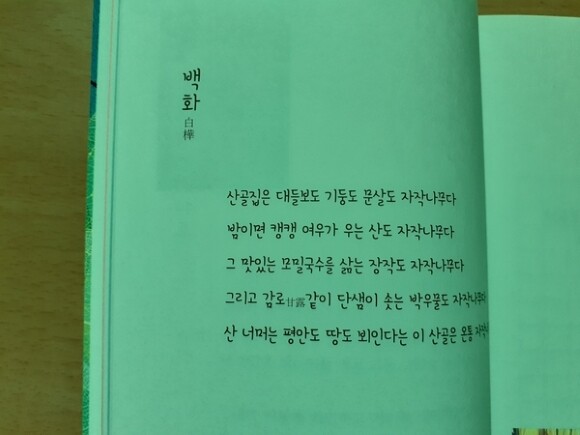 백화
白樺
산골집은 대들보도 기둥도 문살도 자작나무다
밤이면 캥캥 여우가 우는 산도 자작나무다
그 맛있는 모밀국수를 삶는 장작도 자작나무다
그리고 감로甘露같이 단샘이 솟는 박우물도 자작나무다
산 너머는 평안도 땅도 뵈인다는 이 산골은 온통